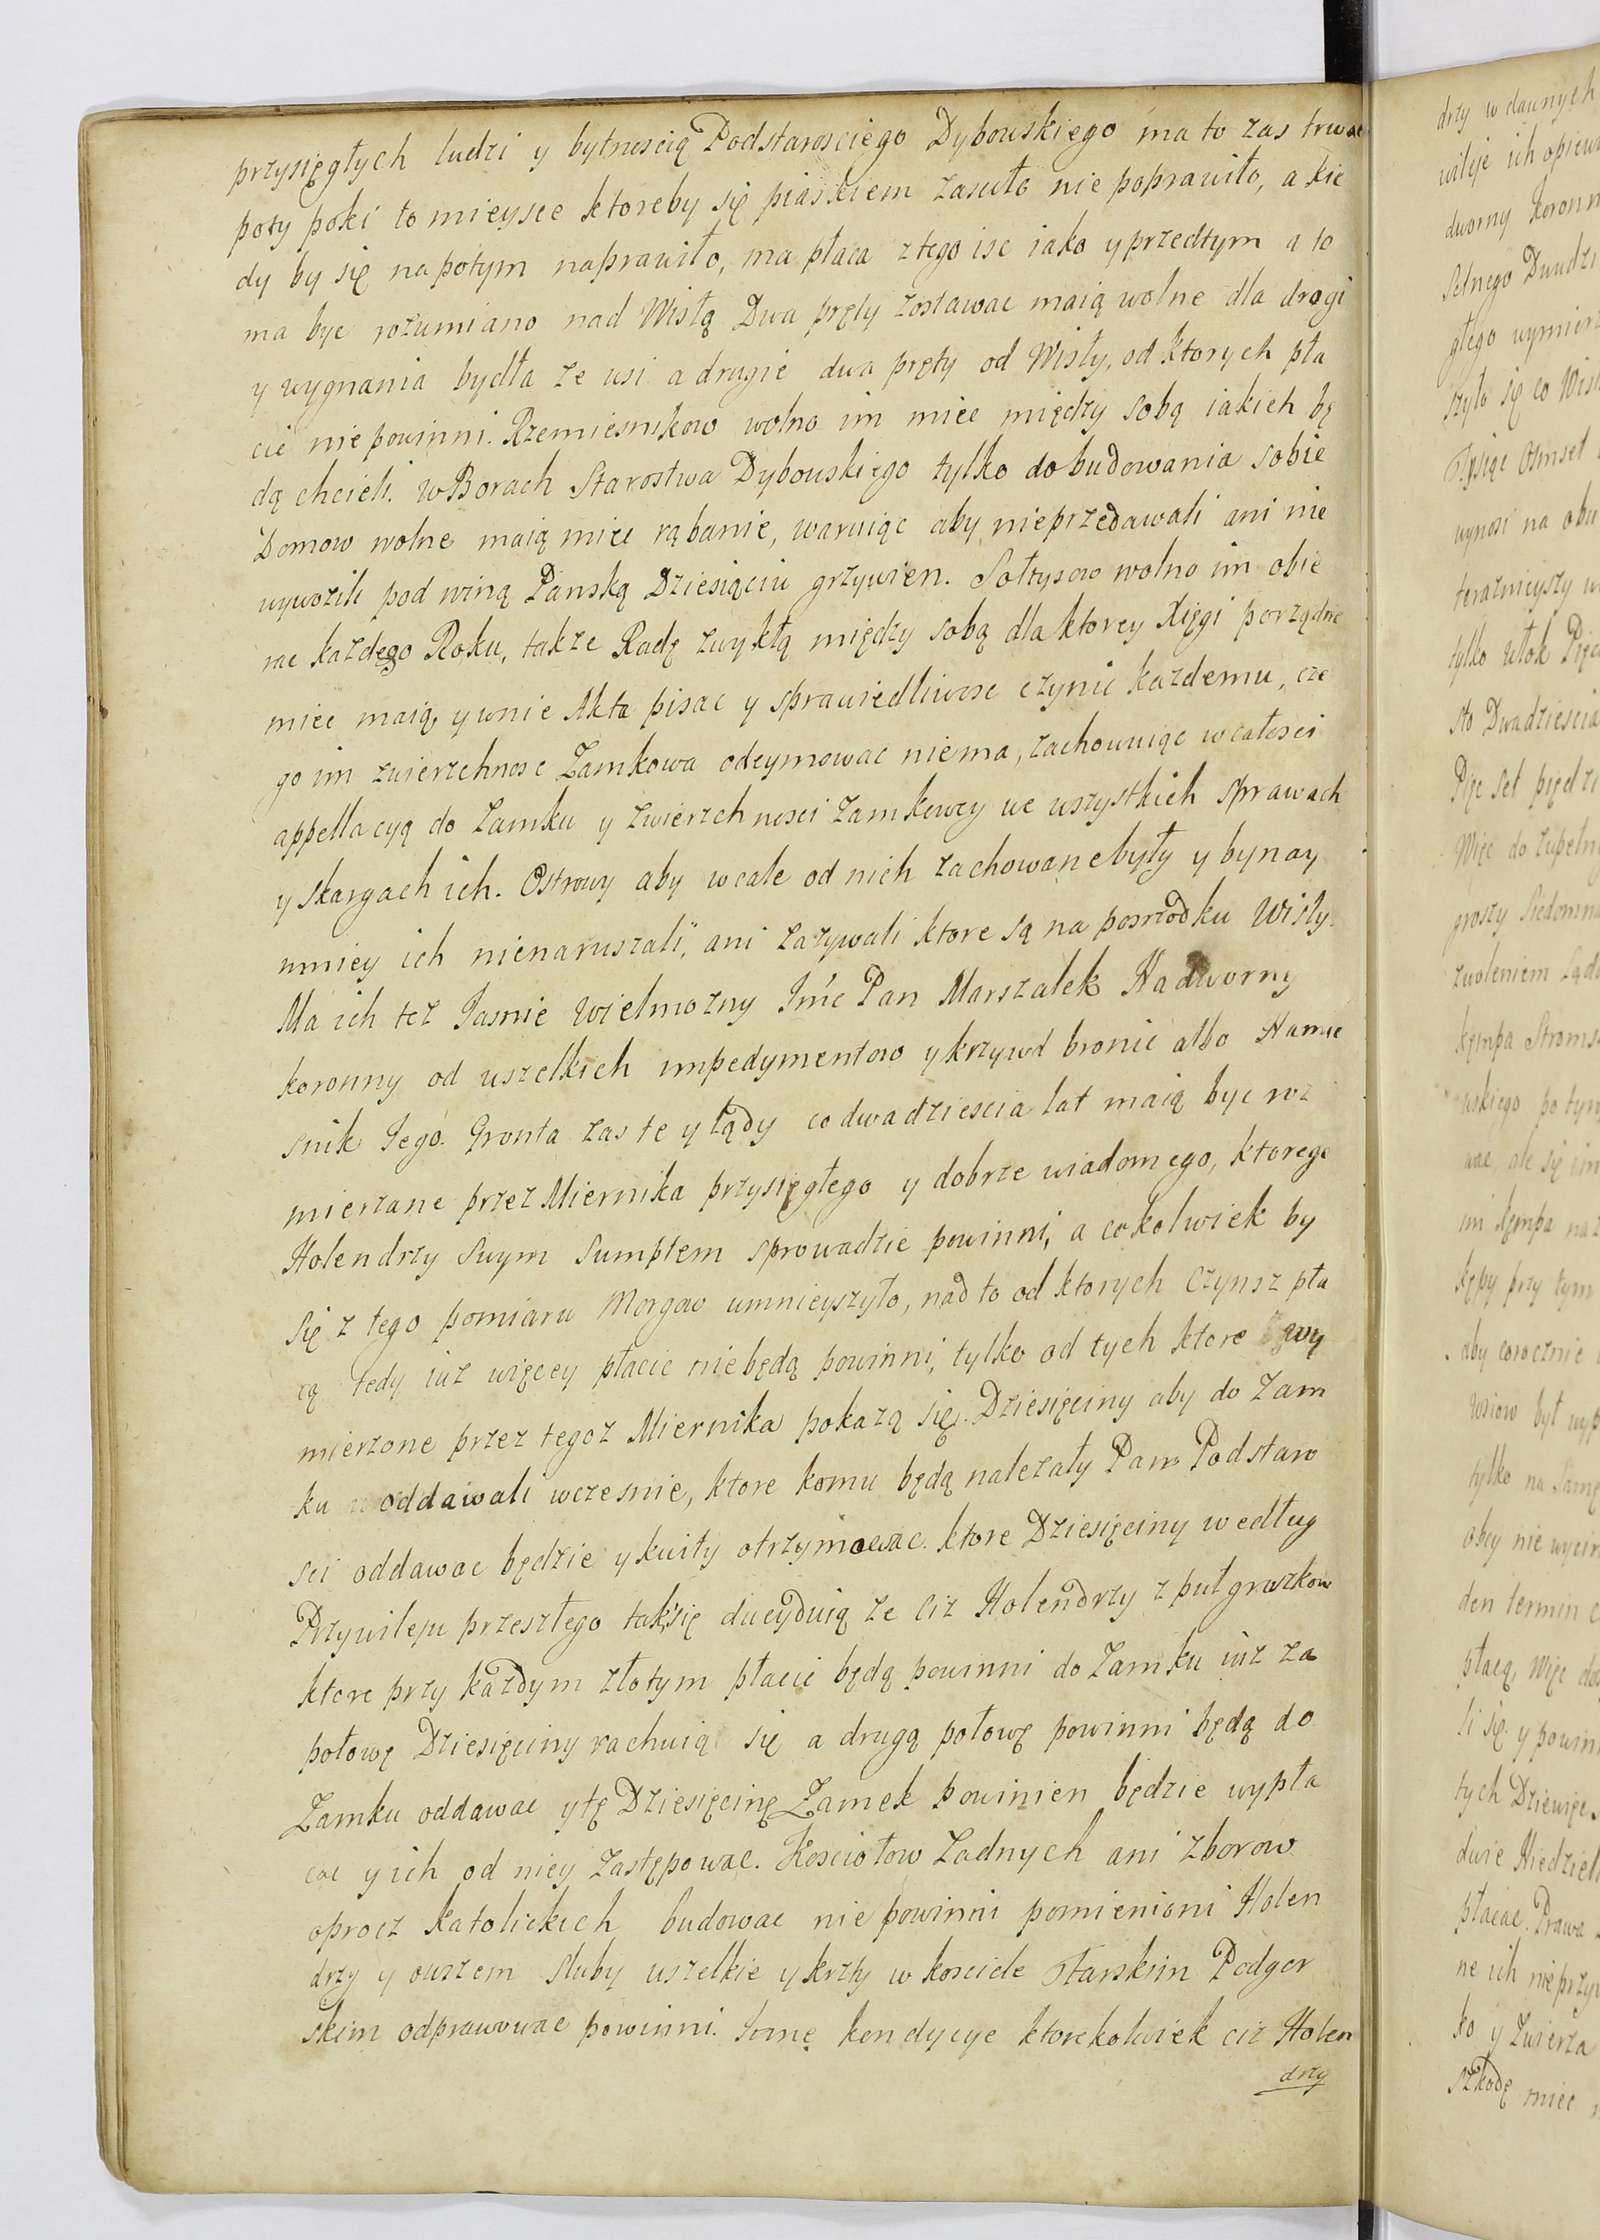 przysięgłych ludzi y bytnoscią Podstarosciego Dybowskiego ma to zas trwac
poty poki to mieysce ktoreby się piaskiem zasuło nie poprawiło, a kie
dy by się napotym naprawiło, ma płaca z tego isc iako y przedtym a to
ma byc rozumiano nad Wisłą Dwa pręty zostawac maią wolne dla drogi
y wygnania bydła ze wsi a drugie dwa pręty od Wisły, od ktorych pła
cic nie powinni. Rzemiesnikow wolno im miec między sobą iakich bę
dą chcieli. w Borach Starostwa Dybowskiego tylko do budowania sobie
Domow wolne maią miec rąbanie, waruiąc aby nieprzedawali ani nie
wywozili pod winą Panską Dziesiąciu grzywien. Sołtysow wolno im obie
rac każdego Roku, takze Radę zwykłą między sobą dla ktorey Xięgi porządne
miec maią, y wnie Akta pisac y sprawiedliwosc czynic kazdemu, cze
go im zwierzchnosc Zamkowa odeymowac niema, zachowuiąc w całosci
appellacyą do Zamku y zwierzchnosci Zamkowey we wszystkich sprawach
y skargach ich. Ostrowy aby wcale od nich zachowane były y bynay
mniey ich nienaruszali, ani zazywali ktore są na posrzodku Wisły.
Ma ich tez Jasnie Wielmozny Jmc Pan Marszałek Nadworny
koronny od wszelkich impedymentow y krzywd bronic albo Namie
snik Jego. Gronta zas te y łądy co dwadziescia lat maią byc roz
mierzane przez Miernika przysięgłego y dobrze wiadomego, ktorego
Holendrzy swym sumptem sprowadzic powinni, a cokolwiek by
się z tego pomiaru Morgow umnieyszyło, nad to od ktorych Czynsz pła
cą tedy iuz więcey płacic niebędą powinni, tylko od tych ktore wy
mierzone przez tegoz Miernika pokazą się. Dziesięciny aby do Zam
ku oddawali wczesnie, ktore komu będą nalezały Pan Podstaro
sci oddawac będzie y kwity otrzymowac. ktore Dziesięciny według
Przywileju przeszłego tak się decyduią ze ciz Holendrzy z puł groszkow
ktore przy każdym złotym płacic będą powinni do Zamku iuz za
połowę Dziesięciny rachuią się a drugą połowę powinni będą do
Zamku oddawac y tę Dziesięcinę Zamek powinien będzie wypła
cac y ich od niey zastępowac. Kosciołow Zadnych ani zborow
oprocz Katolickich budowac nie powinni pomienioni Holen
drzy y owszem sluby wszelkie y krzty w kosciele Farskim Podgor
skim odprawowac powinni. Jnne kondycye ktorekolwiek ciz Holen
drzy

drzy w dawnych
dworny koronn
Setnego Dwudzi
głego wymierz
szyło się co Wis
Tysiąc Osmset
wynosi na obu
teraznieyszy
tylko włok Pięc
sto Dwadziescia
Pięc set pięcdzi
Więc do zupełn
groszy Siedomna
zwoleniem
kępa Stroms
po tym
kępy przy tym
aby corocznie
był wyp
tylko na Samę
obey nie wycin
den termin
płacą, Więc
li się y powin
tych Dziewięc
dwie Niedziel
płacac. Prawa
ne ich nieprzy
ko y Zwierza
szkodę miec